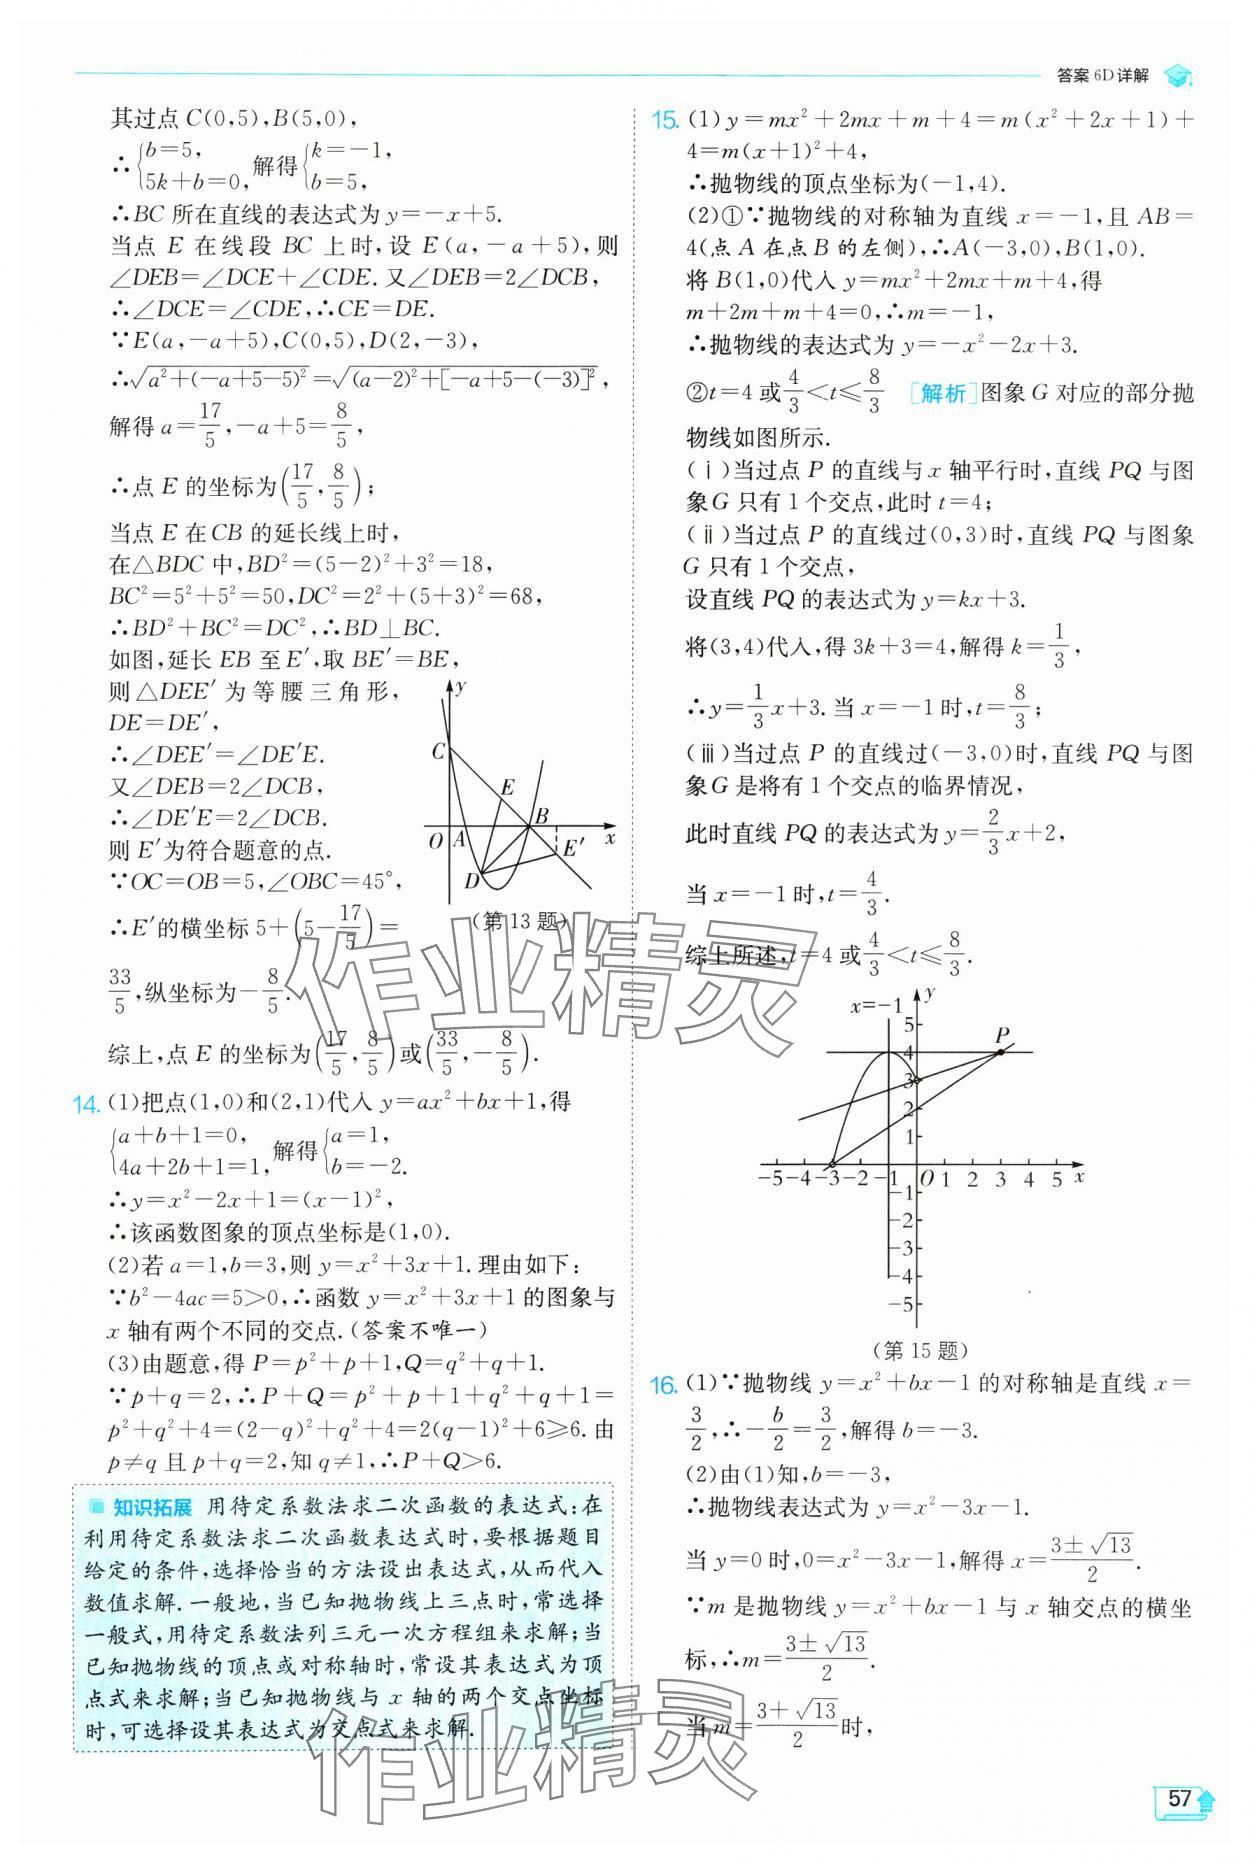 答案 6D详解
其过点 C(0,5),B(5,0),
∴{b=5, 5k+b=0, 解得{k=-1, b=5,
∴BC 所在直线的表达式为 y=-x+5.
当点 E 在线段 BC 上时,设 E(a,-a+5),则
∠DEB=∠DCE+∠CDE.又∠DEB=2∠DCB,
∴∠DCE=∠CDE,∴CE=DE.
∵E(a,-a+5),C(0,5),D(2,-3),
∴√(a²+(-a+5-5)²)=√((a-2)²+[-a+5-(-3)]²),
解得 a=17/5,-a+5=8/5,
∴点 E 的坐标为(17/5,8/5);
当点 E 在CB 的延长线上时,
在△BDC 中,BD²=(5-2)²+3²=18,
BC²=5²+5²=50,DC²=2²+(5+3)²=68,
∴BD²+BC²=DC²,∴BD⊥BC.
如图,延长 EB 至E′,取 BE′=BE,
则△DEE′为等腰三角形,
DE=DE′,
∴∠DEE′=∠DE′E.
又∠DEB=2∠DCB,
∴∠DE′E=2∠DCB.
则 E′为符合题意的点.
∵OC=OB=5,∠OBC=45°,
∴E′的横坐标 5+(5-17/5)=
33/5,纵坐标为-8/5.
综上,点 E 的坐标为(17/5,8/5)或(33/5,-8/5).
y
C
E
B
O A x
E′
D
(第 13 题)
14. (1)把点(1,0)和(2,1)代入 y=ax²+bx+1,得
{a+b+1=0, 4a+2b+1=1, 解得{a=1, b=-2.
∴y=x²-2x+1=(x-1)²,
∴该函数图象的顶点坐标是(1,0).
(2)若 a=1,b=3,则 y=x²+3x+1.理由如下:
∵b²-4ac=5>0,∴函数 y=x²+3x+1 的图象与
x 轴有两个不同的交点.(答案不唯一)
(3)由题意,得 P=p²+p+1,Q=q²+q+1.
∵p+q=2,∴P+Q=p²+p+1+q²+q+1=
p²+q²+4=(2-q)²+q²+4=2(q-1)²+6≥6.由
p≠q 且 p+q=2,知 q≠1,∴P+Q>6.
知识拓展 用待定系数法求二次函数的表达式:在
利用待定系数法求二次函数表达式时,要根据题目
给定的条件,选择恰当的方法设出表达式,从而代入
数值求解.一般地,当已知抛物线上三点时,常选择
一般式,用待定系数法列三元一次方程组来求解;当
已知抛物线的顶点或对称轴时,常设其表达式为顶
点式来求解;当已知抛物线与 x 轴的两个交点坐标
时,可选择设其表达式为交点式来求解.
15. (1)y=mx²+2mx+m+4=m(x²+2x+1)+
4=m(x+1)²+4,
∴抛物线的顶点坐标为(-1,4).
(2)①∵抛物线的对称轴为直线 x=-1,且 AB=
4(点 A 在点 B 的左侧),∴A(-3,0),B(1,0).
将 B(1,0)代入 y=mx²+2mx+m+4,得
m+2m+m+4=0,∴m=-1,
∴抛物线的表达式为 y=-x²-2x+3.
②t=4 或4/3<t≤8/3 [解析]图象 G 对应的部分抛
物线如图所示.
(ⅰ)当过点 P 的直线与 x 轴平行时,直线 PQ 与图
象G 只有 1 个交点,此时 t=4;
(ⅱ)当过点 P 的直线过(0,3)时,直线 PQ 与图象
G 只有 1 个交点,
设直线 PQ 的表达式为 y=kx+3.
将(3,4)代入,得 3k+3=4,解得 k=1/3,
∴y=1/3x+3.当 x=-1 时,t=8/3;
(ⅲ)当过点 P 的直线过(-3,0)时,直线 PQ 与图
象G 是将有 1 个交点的临界情况,
此时直线 PQ 的表达式为 y=2/3x+2,
当 x=-1 时,t=4/3.
综上所述,t=4 或4/3<t≤8/3.
x=-1 y
5
4 P
3
2
1
-5-4-3-2-1 O 1 2 3 4 5 x
-1
-2
-3
-4
-5
(第 15 题)
16. (1)∵抛物线 y=x²+bx-1 的对称轴是直线 x=
3/2,∴-b/2=3/2,解得 b=-3.
(2)由(1)知,b=-3,
∴抛物线表达式为 y=x²-3x-1.
当 y=0 时,0=x²-3x-1,解得 x=(3±√13)/2.
∵m 是抛物线 y=x²+bx-1 与 x 轴交点的横坐
标,∴m=(3±√13)/2.
当 m=(3+√13)/2时,
57
作业精灵
作业精灵